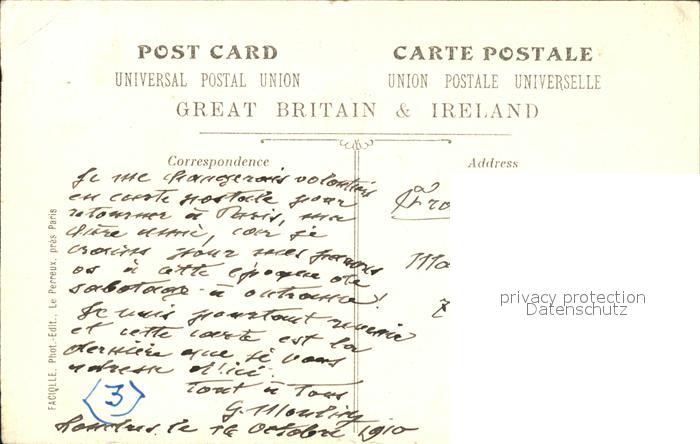 POST CARD
CARTE POSTALE
UNIVERSAL POSTAL UNION
UNION POSTALE UNIVERSELLE
GREAT BRITAIN & IRELAND
Correspondence
Address
Je me changerais volontiers
en carte postale pour
retourner à Paris, ma
chère amie, car je
crains pour mes pauvres
os à cette époque de
sabotage à outrance!
Je suis pourtant
et cette carte est la
dernière que je vous
adresse d'ici.
Tout à Vous
G.
Londres. le 12 Octobre 1910
3
FACIOLLE, Phot.-Edit., Le Perreux, près Paris
privacy protection
Datenschutz